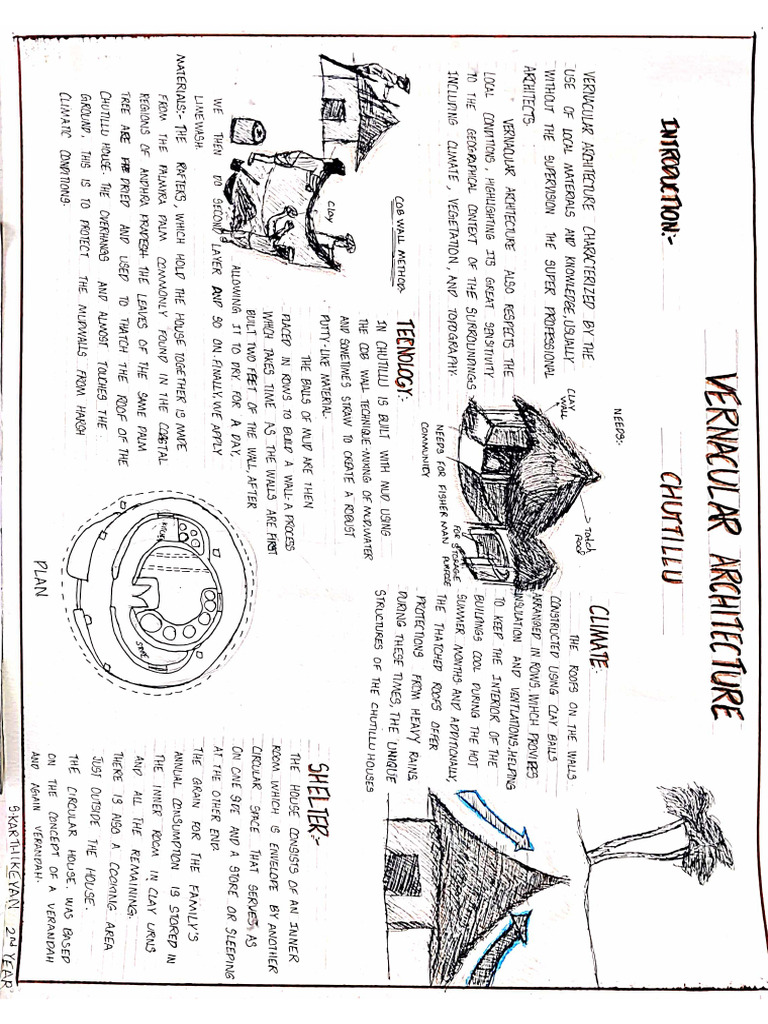 VERNACULAR ARCHITECTURE
CHUTILLU
INTRODUCTION:-
VERNACULAR ARCHITECTURE CHARACTERIZED BY THE
USE OF LOCAL MATERIALS AND KNOWLEDGE, USUALLY
WITHOUT THE SUPERVISION THE SUPER PROFESSIONAL
ARCHITECTS.
VERNACULAR ARCHITECTURE ALSO RESPECTS THE
LOCAL CONDITIONS, HIGHLIGHTING ITS GREAT SENSITIVITY
TO THE GEOGRAPHICAL CONTEXT OF THE SURROUNDINGS
INCLUDING CLIMATE, VEGETATION, AND TOPOGRAPHY.
NEEDS:-
CLAY
WALL
THATCH
ROOF
FOR STORAGE
PURPOSE
NEEDS FOR FISHER MAN
COMMUNITY
CLIMATE:
THE ROOFS ON THE WALLS
CONSTRUCTED USING CLAY BALLS
ARRANGED IN ROWS. WIHCH PROVIDES
INSULATION AND VENTILATIONS, HELPING
TO KEEP THE INTERIOR OF THE
BUILDINGS COOL DURING THE HOT
SUMMER MONTHS. AND ADDITIONALLY,
THE THATCHED ROOFS OFFER
PROTECTIONS FROM HEAVY RAINS.
DURING THESE TIMES, THE UNIQUE
STRUCTURES OF THE CHUTILLU HOUSES
COB WALL METHOD:-
CLAY
TECNOLOGY:-
IN CHUTILLU IS BUILT WITH MUD USING
THE COB WALL TECHNIQUE-MIXING OF MUD, WATER
AND SOMETIMES STRAW TO CREATE A ROBUST
PUTTY-LIKE MATERIAL
THE BALLS OF MUD ARE THEN
PLACED IN ROWS TO BUILD A WALL-A PROCESS
WHICH TAKES TIME AS THE WALLS ARE FIRST
BUILT TWO FEET OF THE WALL, AFTER
ALLOWING IT TO DRY. FOR A DAY,
WE THEN DO SECOND LAYER AND SO ON. FINALLY, WE APPLY
LIMEWASH.
MATERIALS:- THE RAFTERS, WHICH HOLD THE HOUSE TOGETHER IS MADE
FROM THE PALMIRA PALM COMMONLY FOUND IN THE COASTAL
REGIONS OF ANDHRA PRADESH. THE LEAVES OF THE SAME PALM
TREE ARE DRIED AND USED TO THATCH THE ROOF OF THE
CHUTILLU HOUSE. THE OVERHANGS AND ALMOST TOUCHES THE
GROUND. THIS IS TO PROTECT THE MUDWALLS FROM HARSH
CLIMATIC CONDITIONS.
STORE
PLAN
SHELTER:-
THE HOUSE CONSISTS OF AN INNER
ROOM WHICH IS ENVELOPE BY ANOTHER
CIRCULAR SPACE THAT SERVES AS
ON ONE SIDE AND A STORE OR SLEEPING
AT THE OTHER END.
THE GRAIN FOR THE FAMILY'S
ANNUAL CONSUMPTION IS STORED IN
THE INNER ROOM IN CLAY URNS
AND ALL THE REMAINING.
THERE IS ALSO A COOKING AREA
JUST OUTSIDE THE HOUSE.
THE CIRCULAR HOUSE. WAS BASED
ON THE CONCEPT OF A VERANDAH
AND AGAIN VERANDAH.
S.KARTHIKEYAN 2ND YEAR